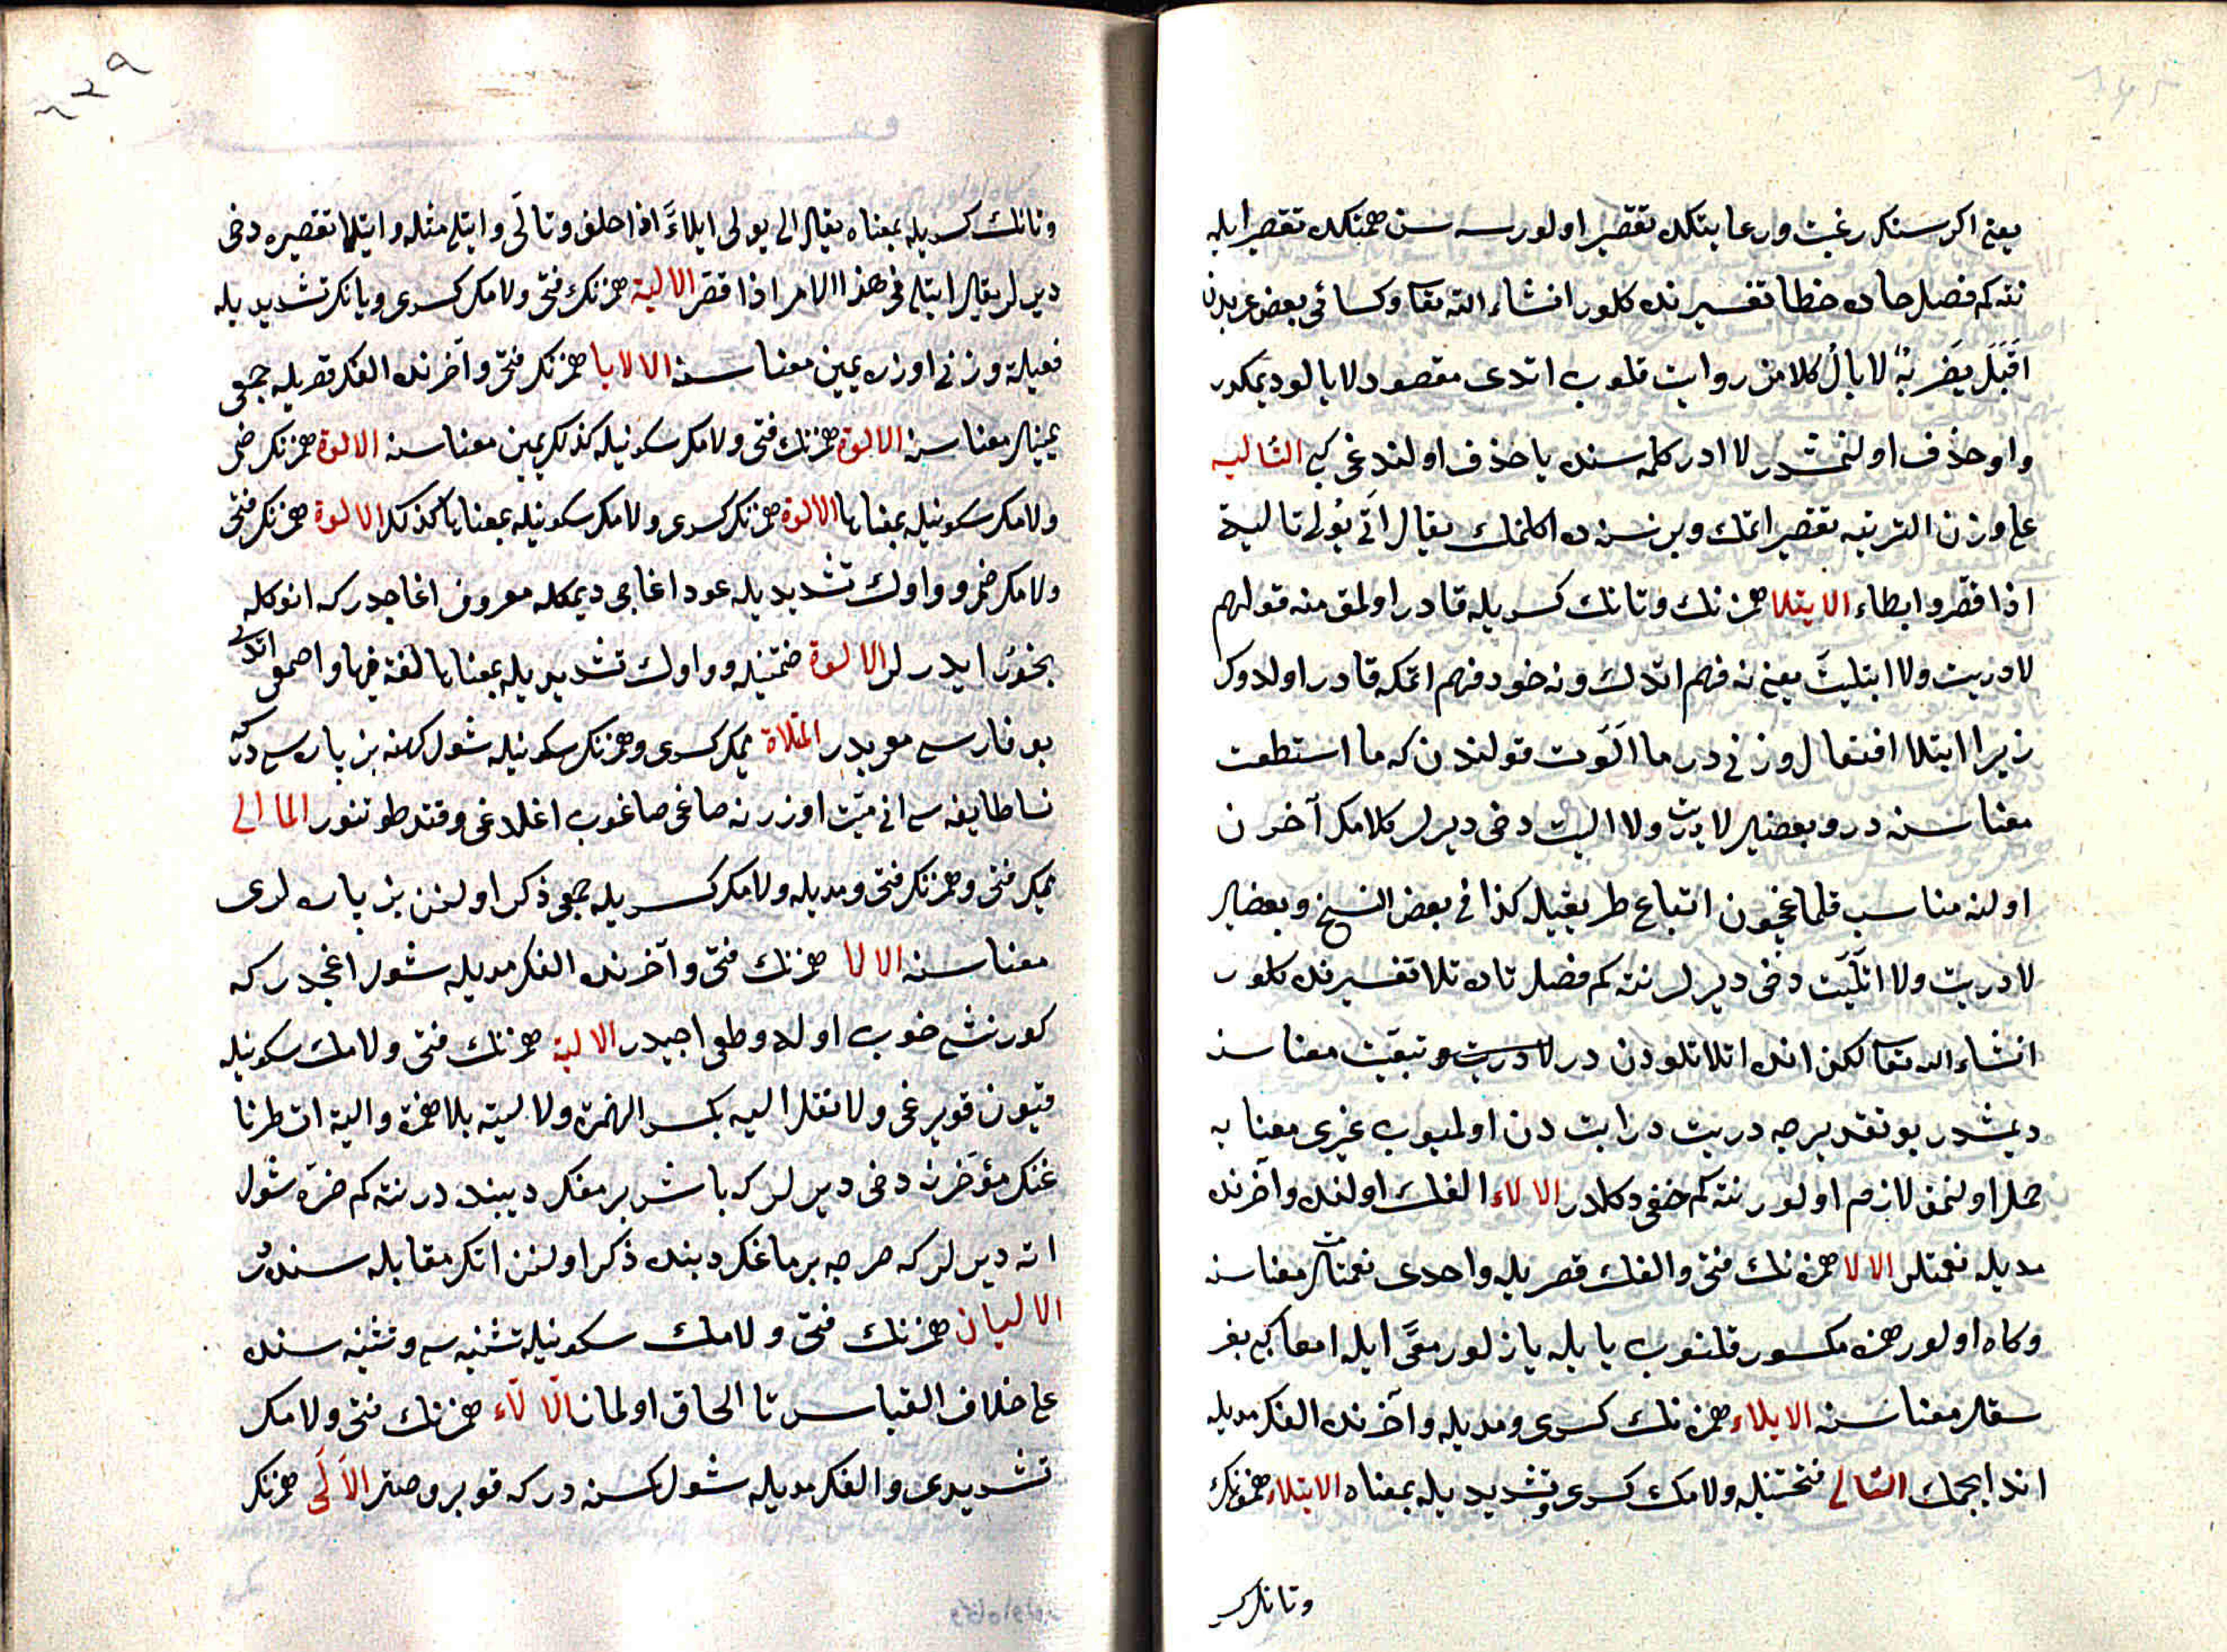 یعنی اکر سنك رغبت ورعایتكده تقصیر اولورسه سن همتكده تقصیر ایله
نته كم فصل حاده خطا تفسیرنده كلور انشاء الله تعا وكسائی بعض عربدن
اقبل یضربه لا یال كلامن روایت قلوب اتدی مقصود لا یالو دیمكدر
واو حذف اولنمشدر لا ادر كلمه سنده یا حذف اولندغی كبی التالیه
على وزن التربیه تقصیر اتمك وبر نسنه ده اكلنمك یقال الى یولی تالیة
اذا قصر وابطاء الایتلا همزنك وتانك كسریله قادر اولمق منه قولهم
لا دریت ولا ایتلیت یعنی نه فهم اتدك ونه خود فهم اتمكه قادر اولدوك
زیرا ایتلا افتعال وزنی در ما الوت قولندن كه ما استطعت
معناسنه در وبعضیلر لا دریت ولا الیت دخی دیرلر كلامك آخرن
اولنه مناسب قلماغچون اتباع طریقیله كذا فی بعض النسخ وبعضلر
لا دریت ولا اتلیت دخی دیرلر نته كم فصل تاده تلا تفسیرنده كلور
انشاء الله تعا لكن انده اتلا تلودن در لا دریت وتبعت معناسنه
دیمشدر بو تقدیرجه دریت درایت دن اولمیوب غیری معنایه
حمل اولنمق لازم اولور نته كم خفی دكلدر الالاء الفك اولنده وآخرنده
مدیله نعمتلر الالا همزه نك فتحی والفك قصریله واحدی نعمتلر معناسنه
وكاه اولور همزه مكسور قلنوب یا یله یازلور معى ایله امعا كبی بغر
سقلر معناسنه الایلاء همزه نك كسری ومدیله وآخرنده الفك مدیله
اند ایچمك التالی فتحتینله ولامك كسری وتشدیدیله بمعناه الایتلاء همزه نك
وتانك كسر
وتانك كسریله بمعناه یقال الى یولی ایلاءً اذا حلف وتالى وایتلى مثله وایتلا تقصیره دخی
دیرلر یقال ایتلى فی هذا الامر اذا قصر الالیة همزنك فتحی ولامك كسری ویانك تشدیدیله
فعیلة وزنی اوزره یمین معناسنه الالایا همزنك فتحی وآخرنده الفك قصریله جمعی
یمینلر معناسنه الالوة همزنك فتحی ولامك سكونیله كذلك یمین معناسنه الالوة همزنك ضمی
ولامك سكونیله بمعناها الالوة همزنك كسری ولامك سكونیله بمعناها كذلك الالوة همزنك فتحی
ولامك ضمی وواوك تشدیدیله عود اغاجی دیمكله معروف اغاجدر كه انوكله
بخور ایدرلر الالوة ضمتینله وواوك تشدیدیله بمعناها لغة فیها واصمعی اتدی
بو فارسی معربدر المئلاة میمك كسری وهمزنك سكونیله شول كهنه بز پاره سی در كه
نسا طایفه سی انی میت اوزرنه صاغی صاغوب اغلادغی وقتده طوتنور المالی
میمك فتحی وهمزنك فتحی ومدیله ولامك كسریله جمعی ذكر اولنن بز پاره لری
معناسنه الالا همزنك فتحی وآخرنده الفك مدیله شول اغجدر كه
كورنشی خوب اوله وطعمی اجیدر الالیة همزنك فتحی ولامك سكونیله
قیون قویرغی ولا تقل الیه بكسر الهمزة ولا لیة بلا همزة والیة ات طرنا
غنك مؤخرنه دخی دیرلر كه باش برمغك دیبنده در نته كم ضرة شول
اته دیرلر كه صرچه برماغك دبنده ذكر اولنن اتك مقابله سنده در
الالیان همزنك فتحی ولامك سكونیله تثنیه سی وتثنیه سنده
على خلاف القیاس تا الحاق اولماز الالاء همزنك فتحی ولامك
تشدیدی والفك مدیله شول كسنه در كه قویروصتر الالى همزنك